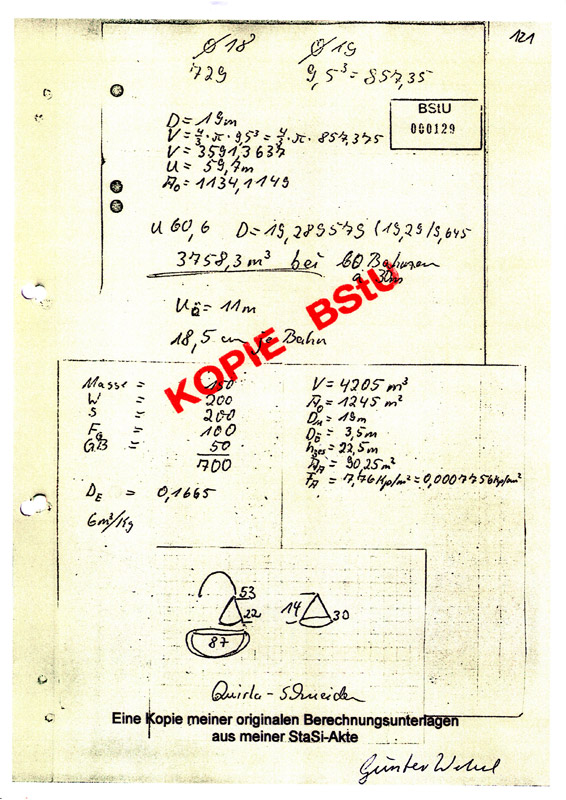 121
Ø 18 Ø 19
729 9,5³ = 857,35
BStU
000129
D = 19m
V = 4/3 · π · 9,5³ = 4/3 · π · 857,375
V = 3591,3637
U = 59,7m
A₀ = 1134,1149
U 60,6 D = 19,289579 (19,29/9,645
3758,3 m³ bei 60 Bahnen
à 30m
UÖ = 11m
18,5 cm je Bahn
KOPIE BStU
Masse = 150
W = 200
S = 200
FG = 100
GB = 50
700
DE = 0,1665
6m³/Kg
V = 4205 m³
A₀ = 1245 m²
DK = 19m
DÖ = 3,5m
hges = 22,5m
AA = 90,25m²
FA = 7,76 Kp/m² = 0,000776 Kp/cm²
53
22
87
14
30
Eine Kopie meiner originalen Berechnungsunterlagen
aus meiner StaSi-Akte
Günter Wetzel